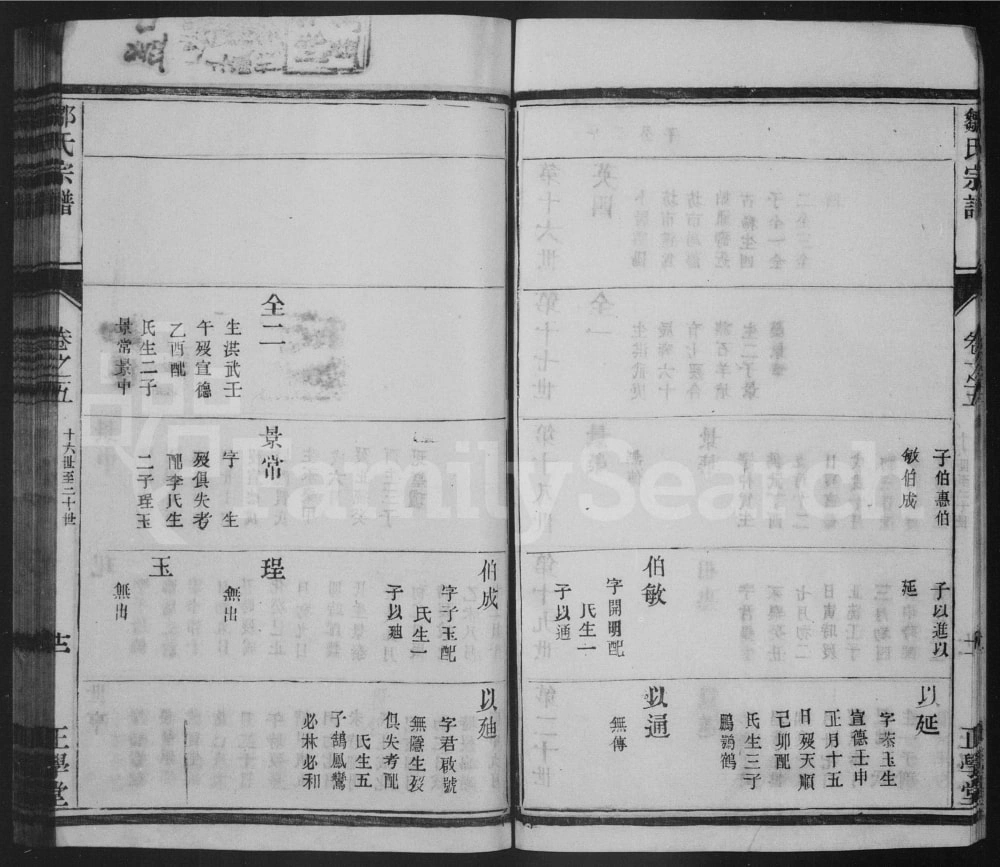 鄒氏宗譜
卷之五
正學堂
子伯惠伯
敏伯成
子以進以
延
以延
字恭玉生
宣德壬申
正月十五
日歿天順
己卯配
氏生三子
鵬鶚鶴
伯敏
字開明配
氏生一
子以通
以通
無傳
伯成
字子玉配
氏生一
子以廸
以廸
字君啟號
無隱生歿
俱失考配
氏生五
子鵠鳳鸞
必林必和
全二
生洪武壬
午歿宣德
乙酉配
氏生二子
景常景中
景常
字 生
歿俱失考
配李氏生
二子珵玉
珵
無出
玉
無出
鄒氏宗譜
卷之五
十六世至二十世
十二
正學堂
FamilySearch